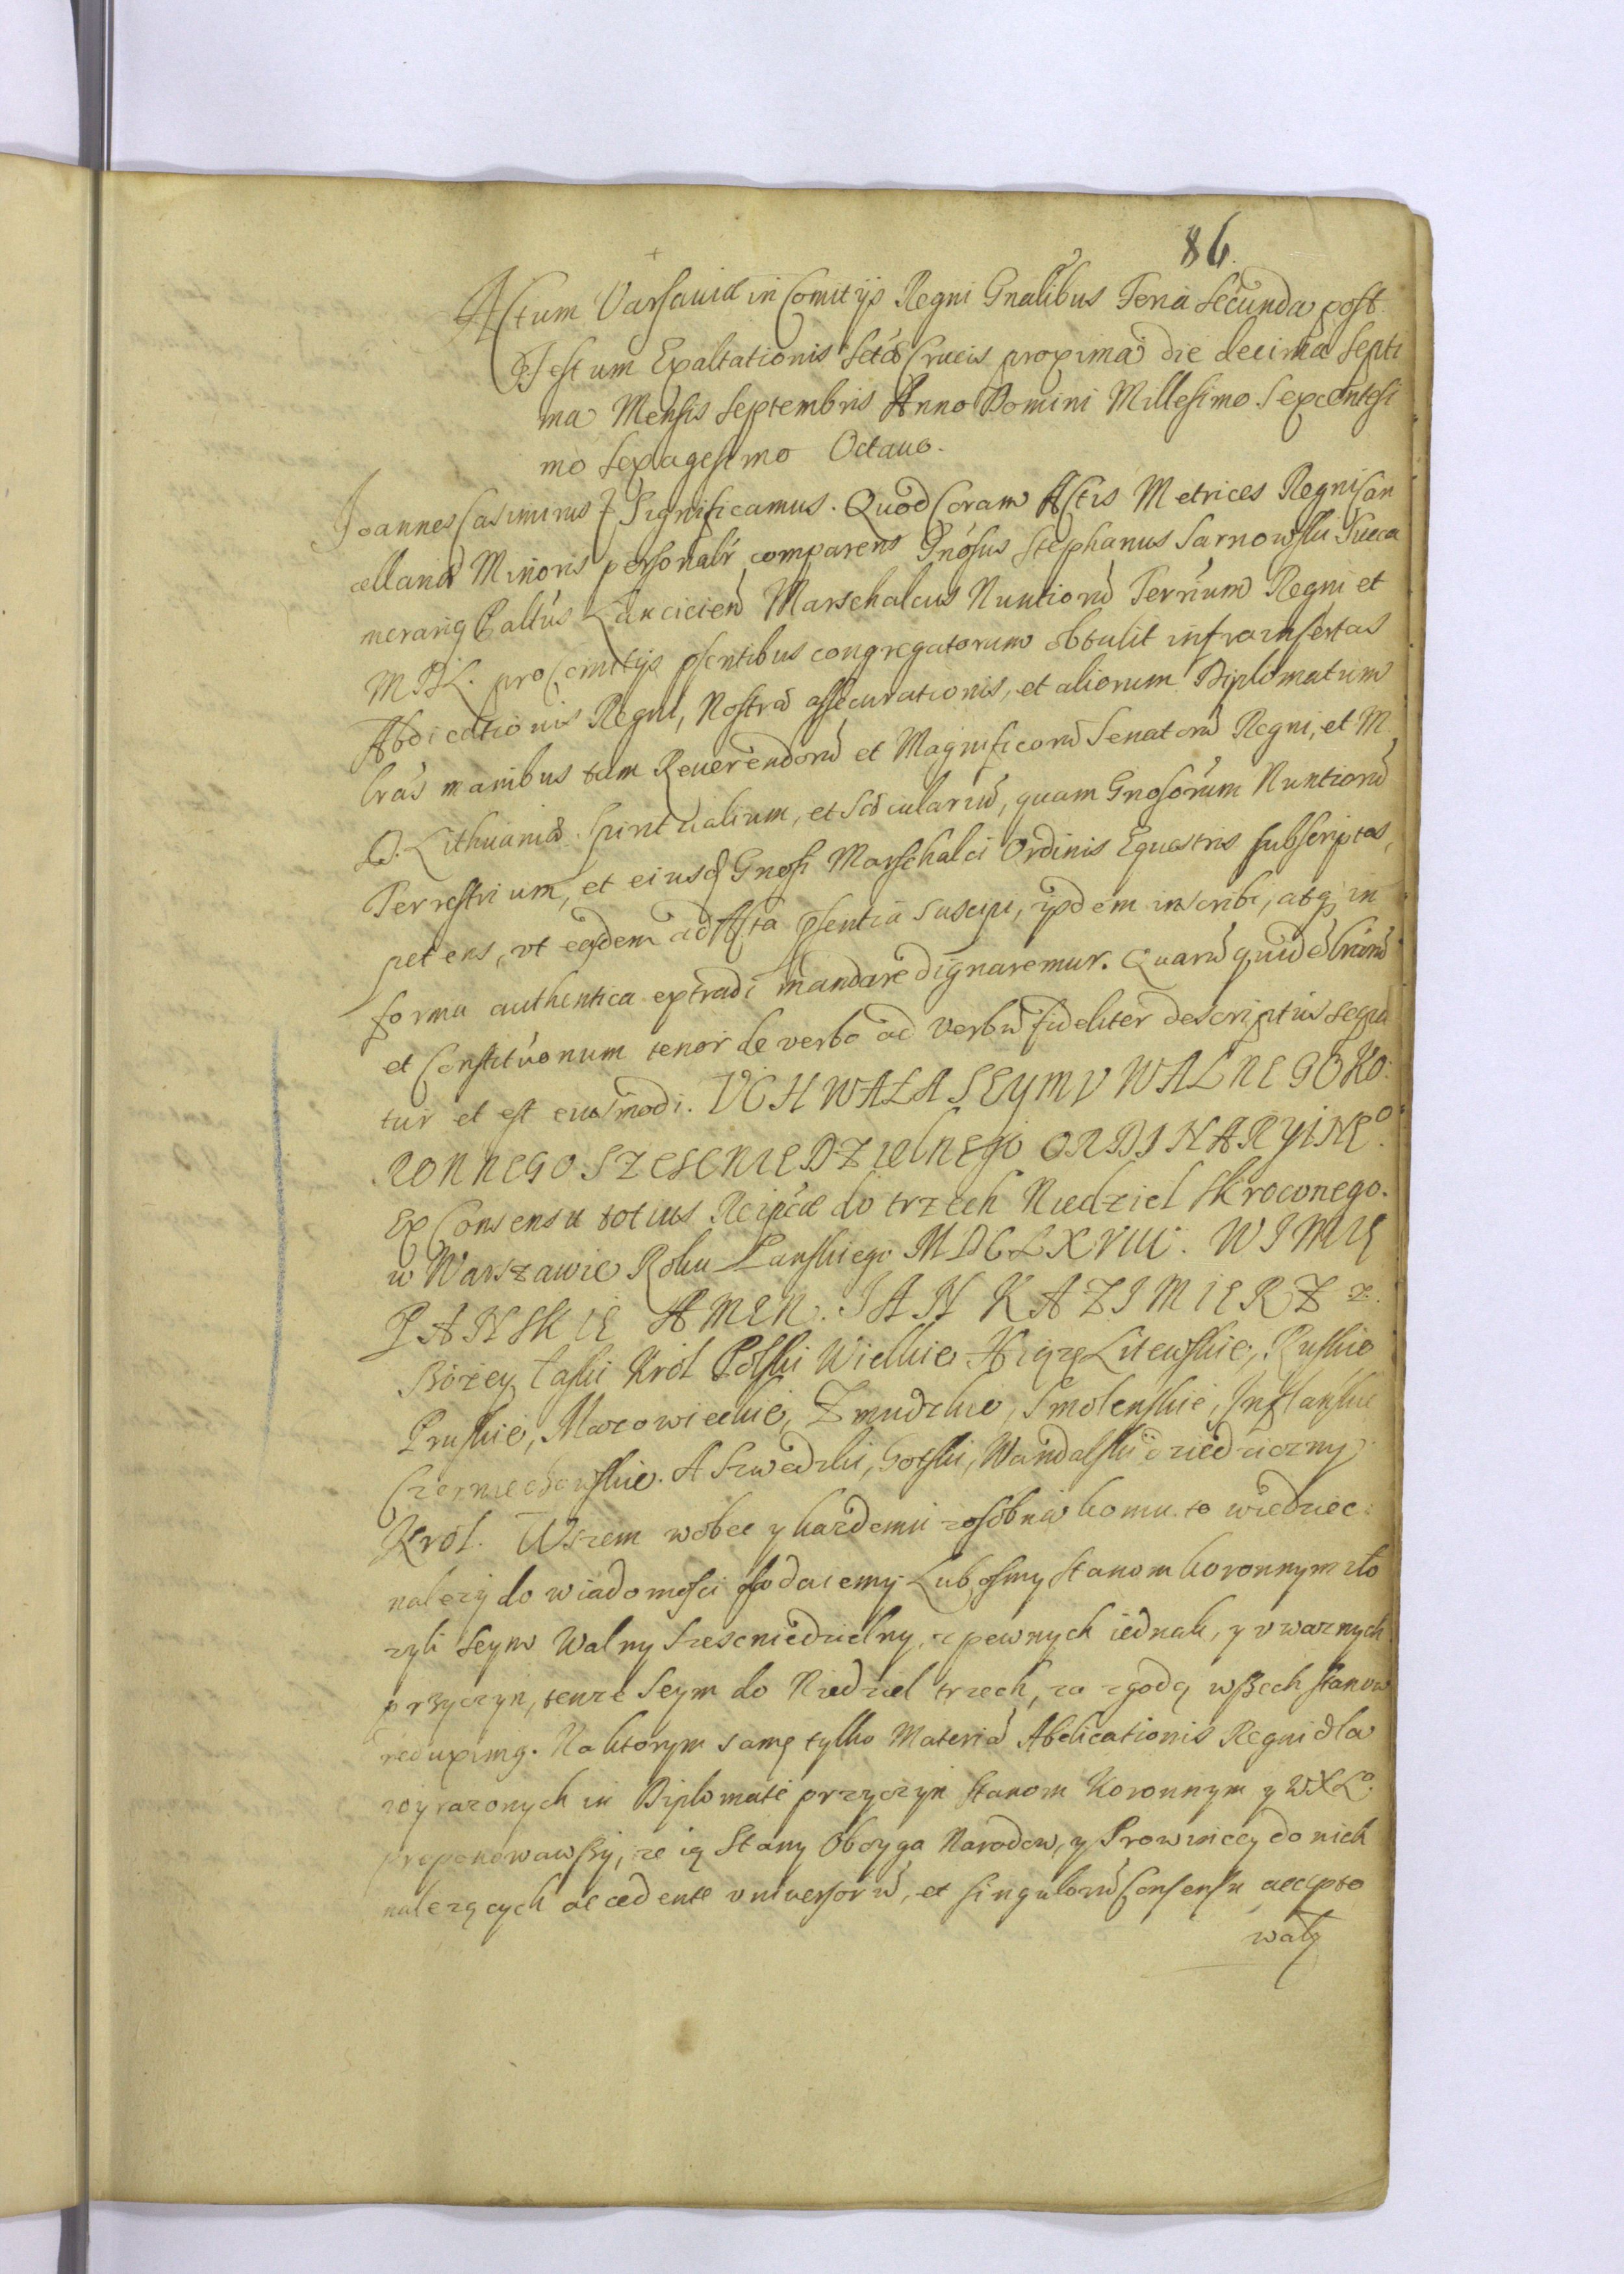 86.
Actum Varsaviæ in Comitijs Regni Gnalibus Feria Secunda post
Festum Exaltationis Sctæ Crucis proxima die decima Septi
ma Mensis Septembris Anno Domini Millesimo Sexcentesi
mo Sexagesimo Octauo.
Joannes Casimirus Significamus. Quod Coram Actis Metrices Regni Can
cellariæ Minoris personalr comparens Gnosus Stephanus Sarnowski Succa
merarig Paltus Lancicien Marschalcus Nuntiorū Terrium Regni et
MDL. pro Comitijs psentibus congregatorum obtulit infrainsertas
Abdicationis Regni, Nostræ assecurationis, et aliorum Diplomatum
lras manibus tam Reuerendorū et Magnificorū Senatorū Regni, et M
D. Lithuaniæ Spiritualium, et Sæculariū, quam Gnosorum Nuntiorū
Terrestrium, et eiusd Gnosi Marschalci Ordinis Equestris subscriptas,
petens, vt easdem ad Acta psentia suscipi, ijsdem inscribi, atq in
forma authentica extradi mandare dignaremur. Quarū quidē lrarū
et Constituonum tenor de verbo ad verbū fideliter descriptus sequi
tur et est eiusmodi. VCHWAŁA SEYMV WALNEGO KO:
RONNEGO SZESCNIEDZIELNEGO ORDINARYINEo.
Ex Consensu totius Reipcæ do trzech Niedziel Skroconego.
w Warszawie Roku Panskiego MDCLXVIII. W IMIE
PANSKIE AMEN. JAN KAZIMIERZ z.
Bozey łaski Krol Polski Wielkie Xiąze Litewskie, Ruskie
Pruskie, Mazowieckie, Zmudzkie, Smolenskie, Inflanskie
Czerniechowskie. A Szwedzki, Gotski, Wandalski dziedziczny
Krol. Wszem wobec y kazdemu zosobna komu to wiedziec
nalezy do wiadomosci podaiemy. Lubosmy Stanom koronnym zło
zyli Seym Walny Szescniedzielny, z pewnych iednak, y vwaznych
przyczyn, tenze Seym do Niedziel trzech, za zgodą wszech Stanow
. Na ktorym samę tylko Materią Abdicationis Regni dla
wyrazonych in Diplomate przyczyn Stanom Koronnym y WXLo.
proponowawszy, ze ią Stany Oboyga Narodow, y Prowincey do nich
nalezących accedente vniuersorū, et singulorū Consensu accepto
wały